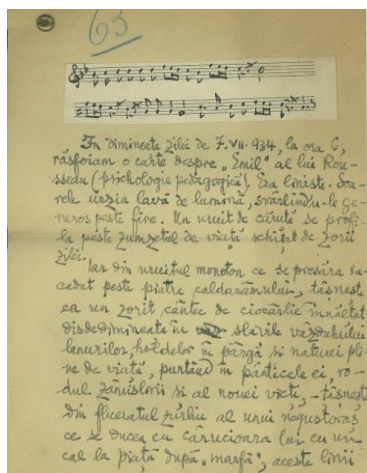 63
In dimineața zilei de 7.VII.934, la ora 6,
răsfoiam o carte despre „Emil" al lui Rou-
sseau (psichologie pedagogică). Era liniste. Soa-
rele urzia lavă de lumină, svârlindu-le ge-
neros peste fire. Un uruit de căruță se profi-
la peste zumzetul de viață schițat de zorii
zilei.
Iar din uruitul monoton ce se presăra sa-
cadat peste piatra caldarâmului, țișnește
ca un zorit cântec de ciocârlie înnălțat
disdedimineață în slăvile văzduhului
lanurilor, holdelor în pârgă si naturei pli-
ne de viață, purtând în pânticele ei, ro-
dul zămislirii si al nouei vieți, - țișnește
din flueratul zurliu al unui negustoraș
ce se ducea cu cărucioara lui cu un
cal la piață după „marfă", aceste linii